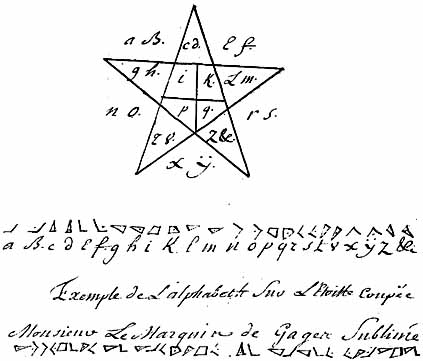 a B. cd. l f.
g h. i K. L m.
n o. p q. r s.
t v. z &c.
x ÿ.
a B. c d l f. g h i K. l m n o p q r s t v x ÿ z &c.
Exemple de L'alphabett Sur L'Etoille Coupée
Monsieur Le Marquis de Gages Sublime